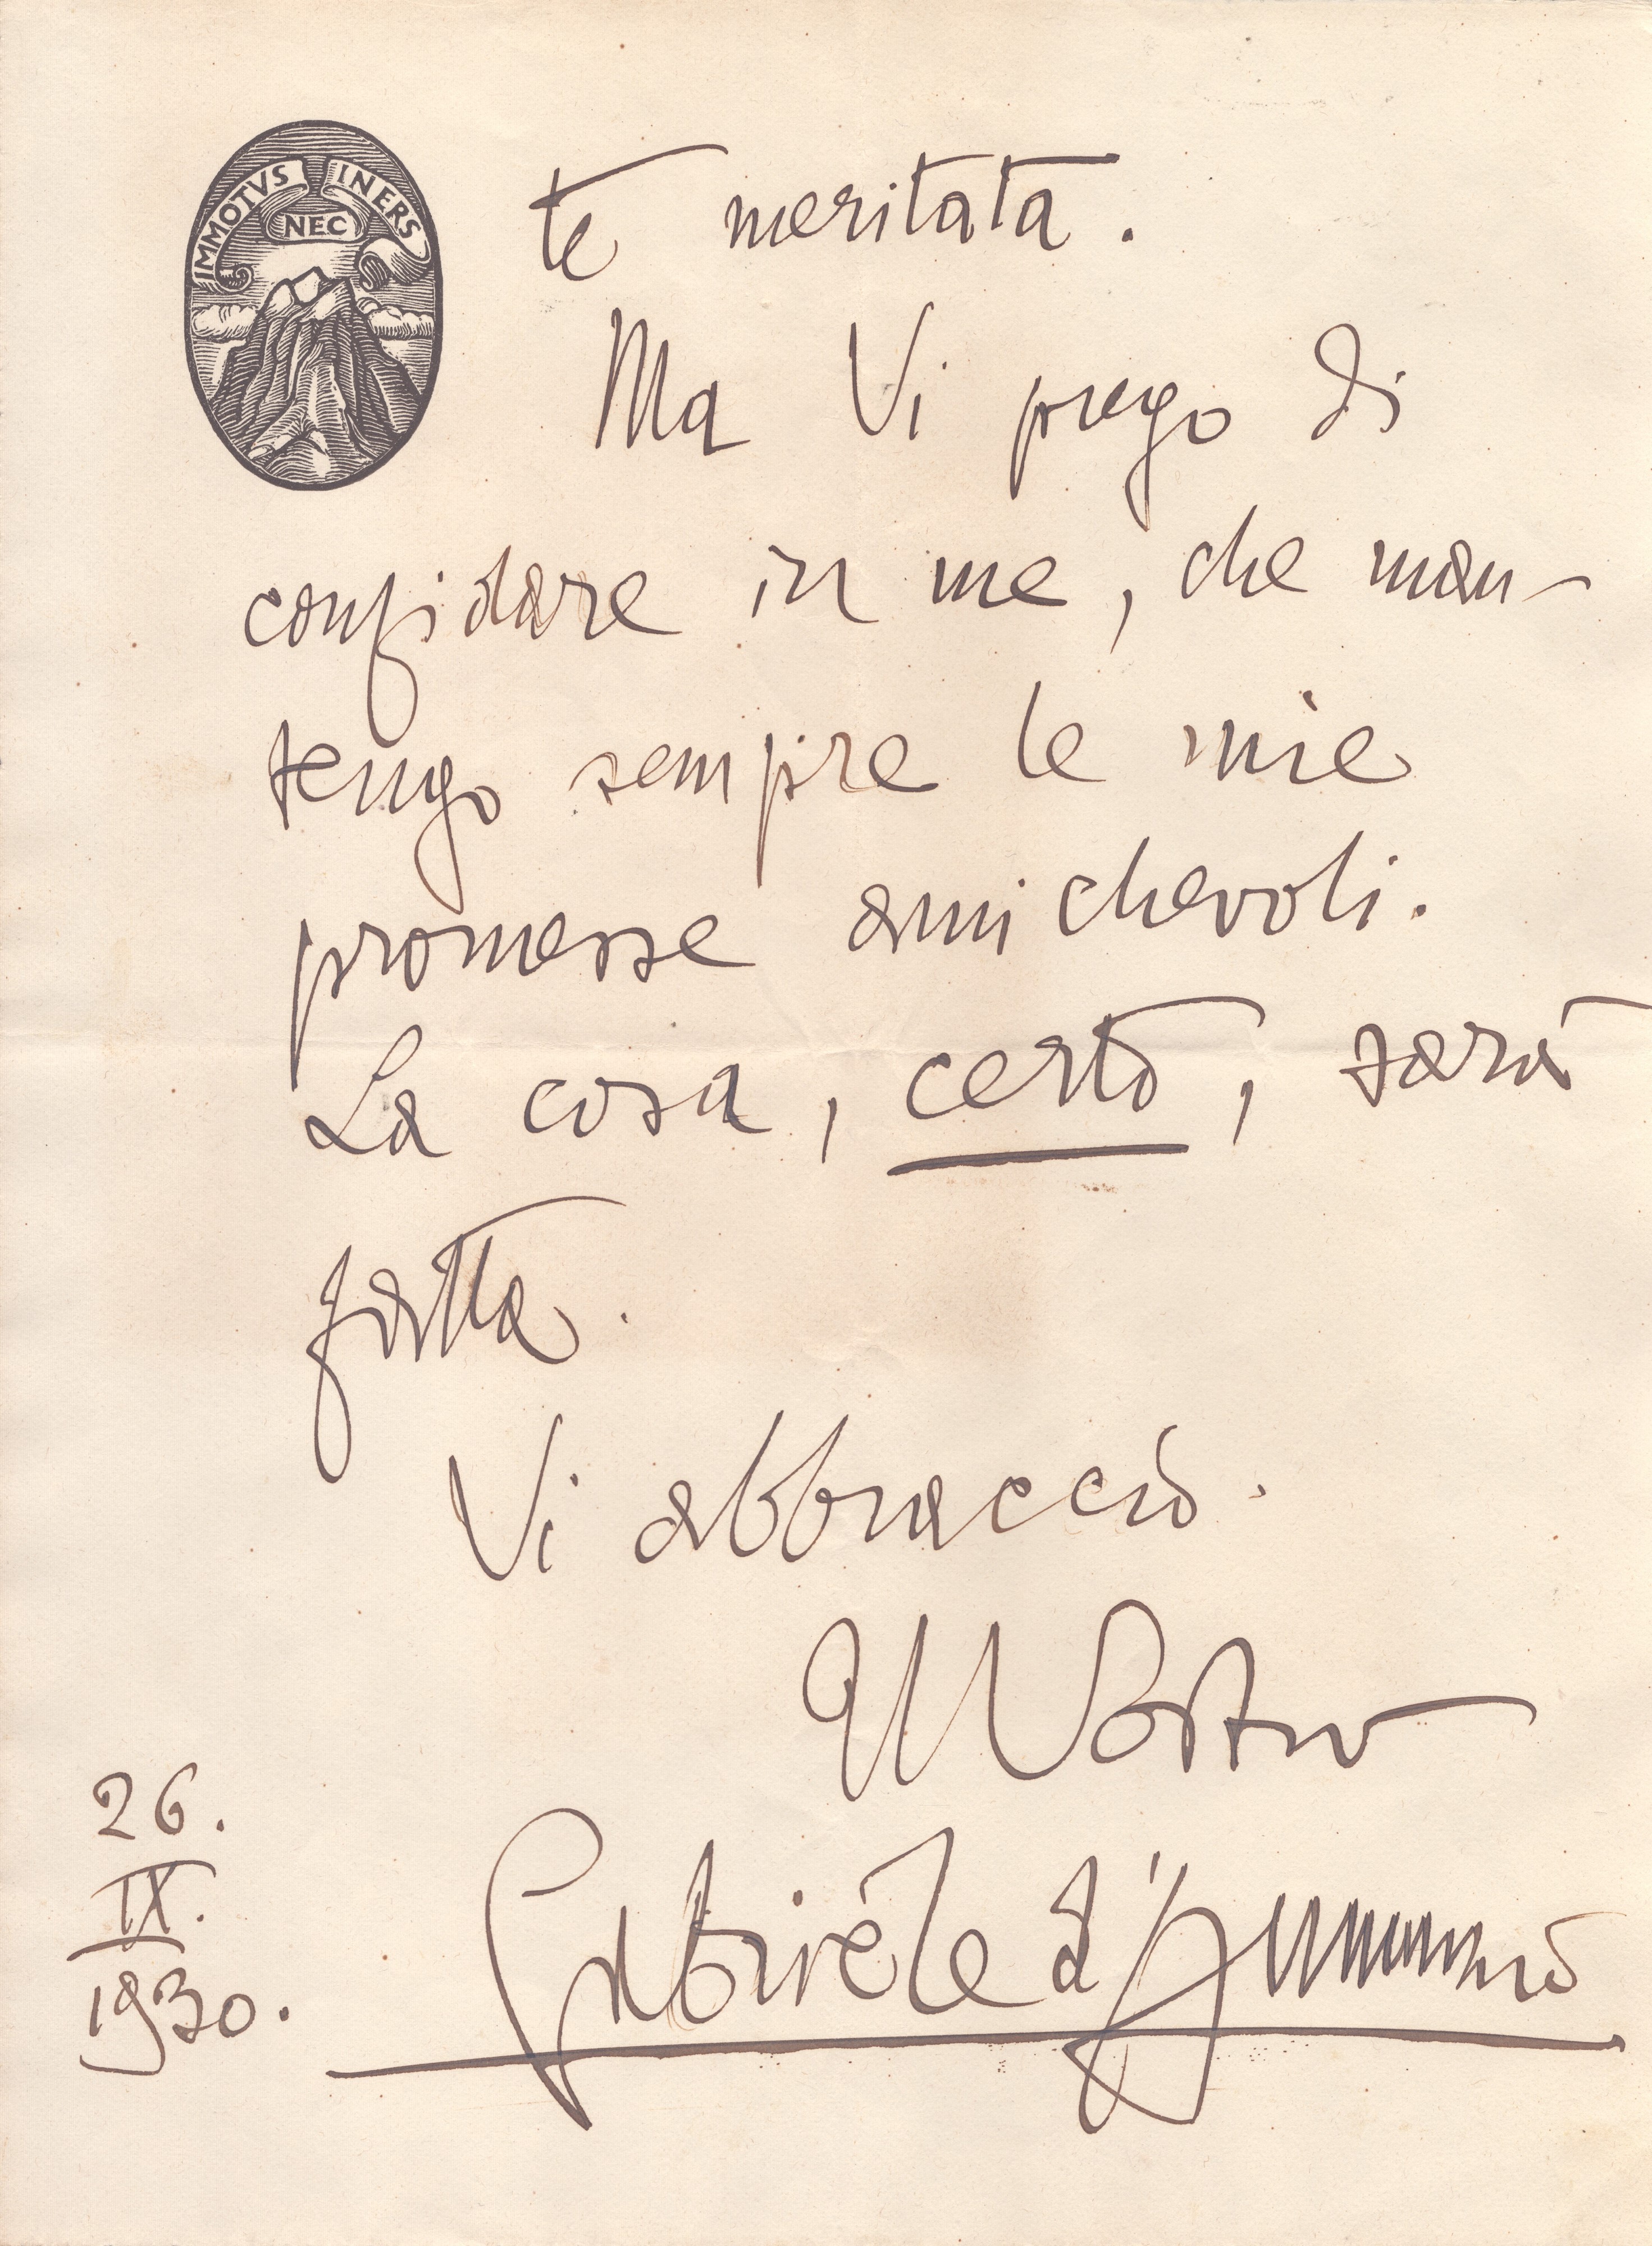 IMMOTVS NEC INERS
te meritata.
Ma Vi prego di
confidare in me, che man-
tengo sempre le mie
promesse amichevoli.
La cosa, certo, sarà
fatta.
Vi abbraccio.
Il Vostro
Gabriele d'Annunzio
26.
IX.
1930.